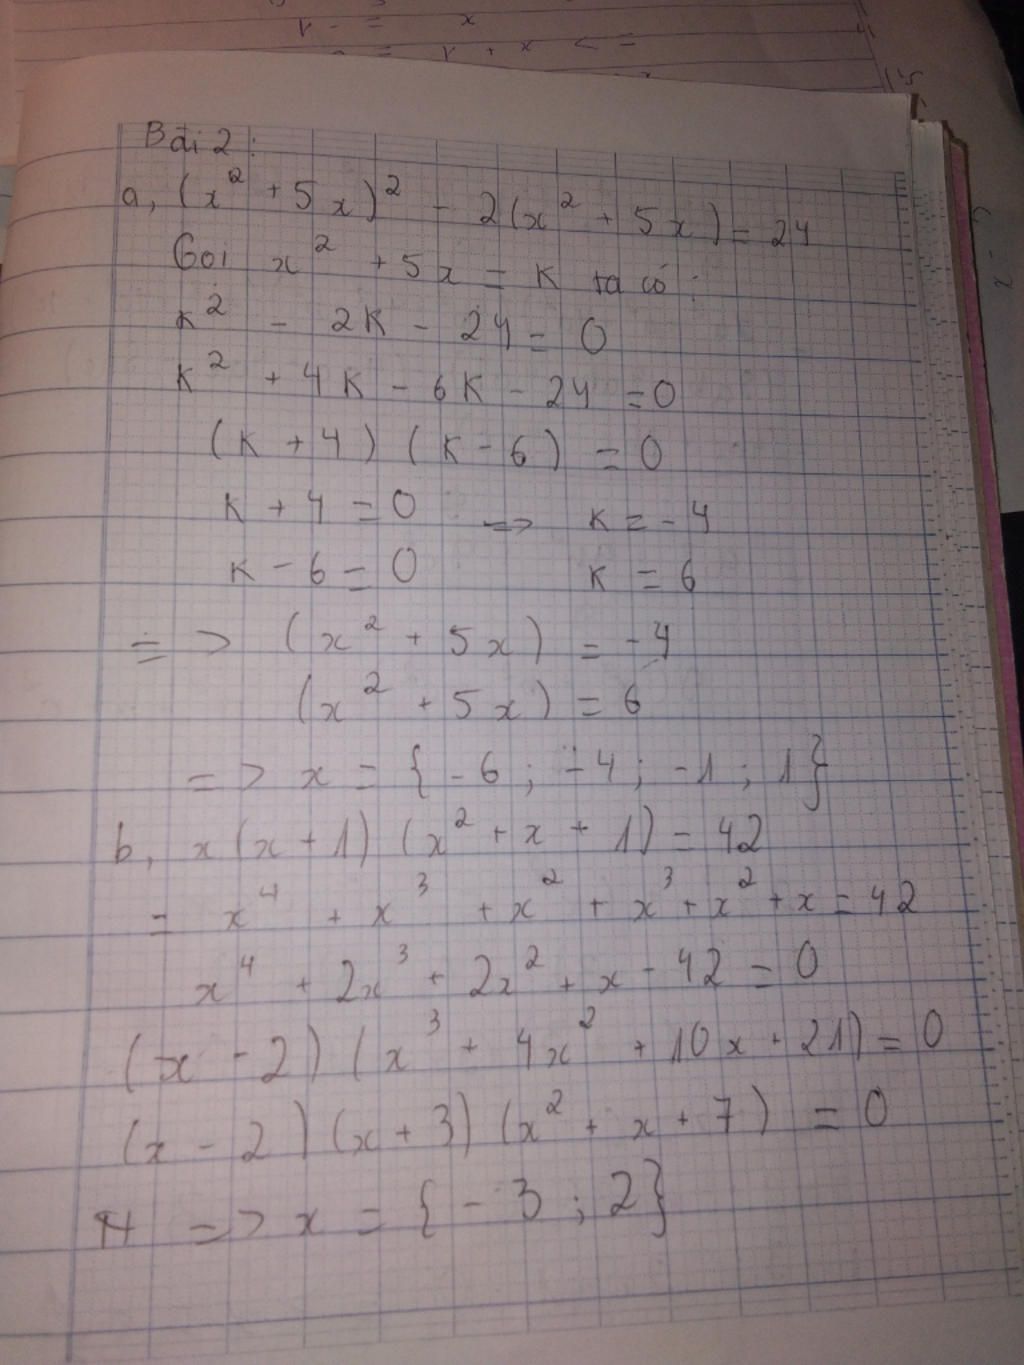 Bài 2:
a, (x² + 5x)² - 2(x² + 5x) = 24
Gọi x² + 5x = K ta có:
K² - 2K - 24 = 0
K² + 4K - 6K - 24 = 0
(K + 4) (K - 6) = 0
K + 4 = 0 => K = -4
K - 6 = 0 K = 6
=> (x² + 5x) = -4
(x² + 5x) = 6
=> x = {-6; -4; -1; 1}
b, x(x + 1) (x² + x + 1) = 42
= x⁴ + x³ + x² + x³ + x² + x = 42
x⁴ + 2x³ + 2x² + x - 42 = 0
(x - 2) (x³ + 4x² + 10x + 21) = 0
(x - 2) (x + 3) (x² + x + 7) = 0
=> x = {-3; 2}